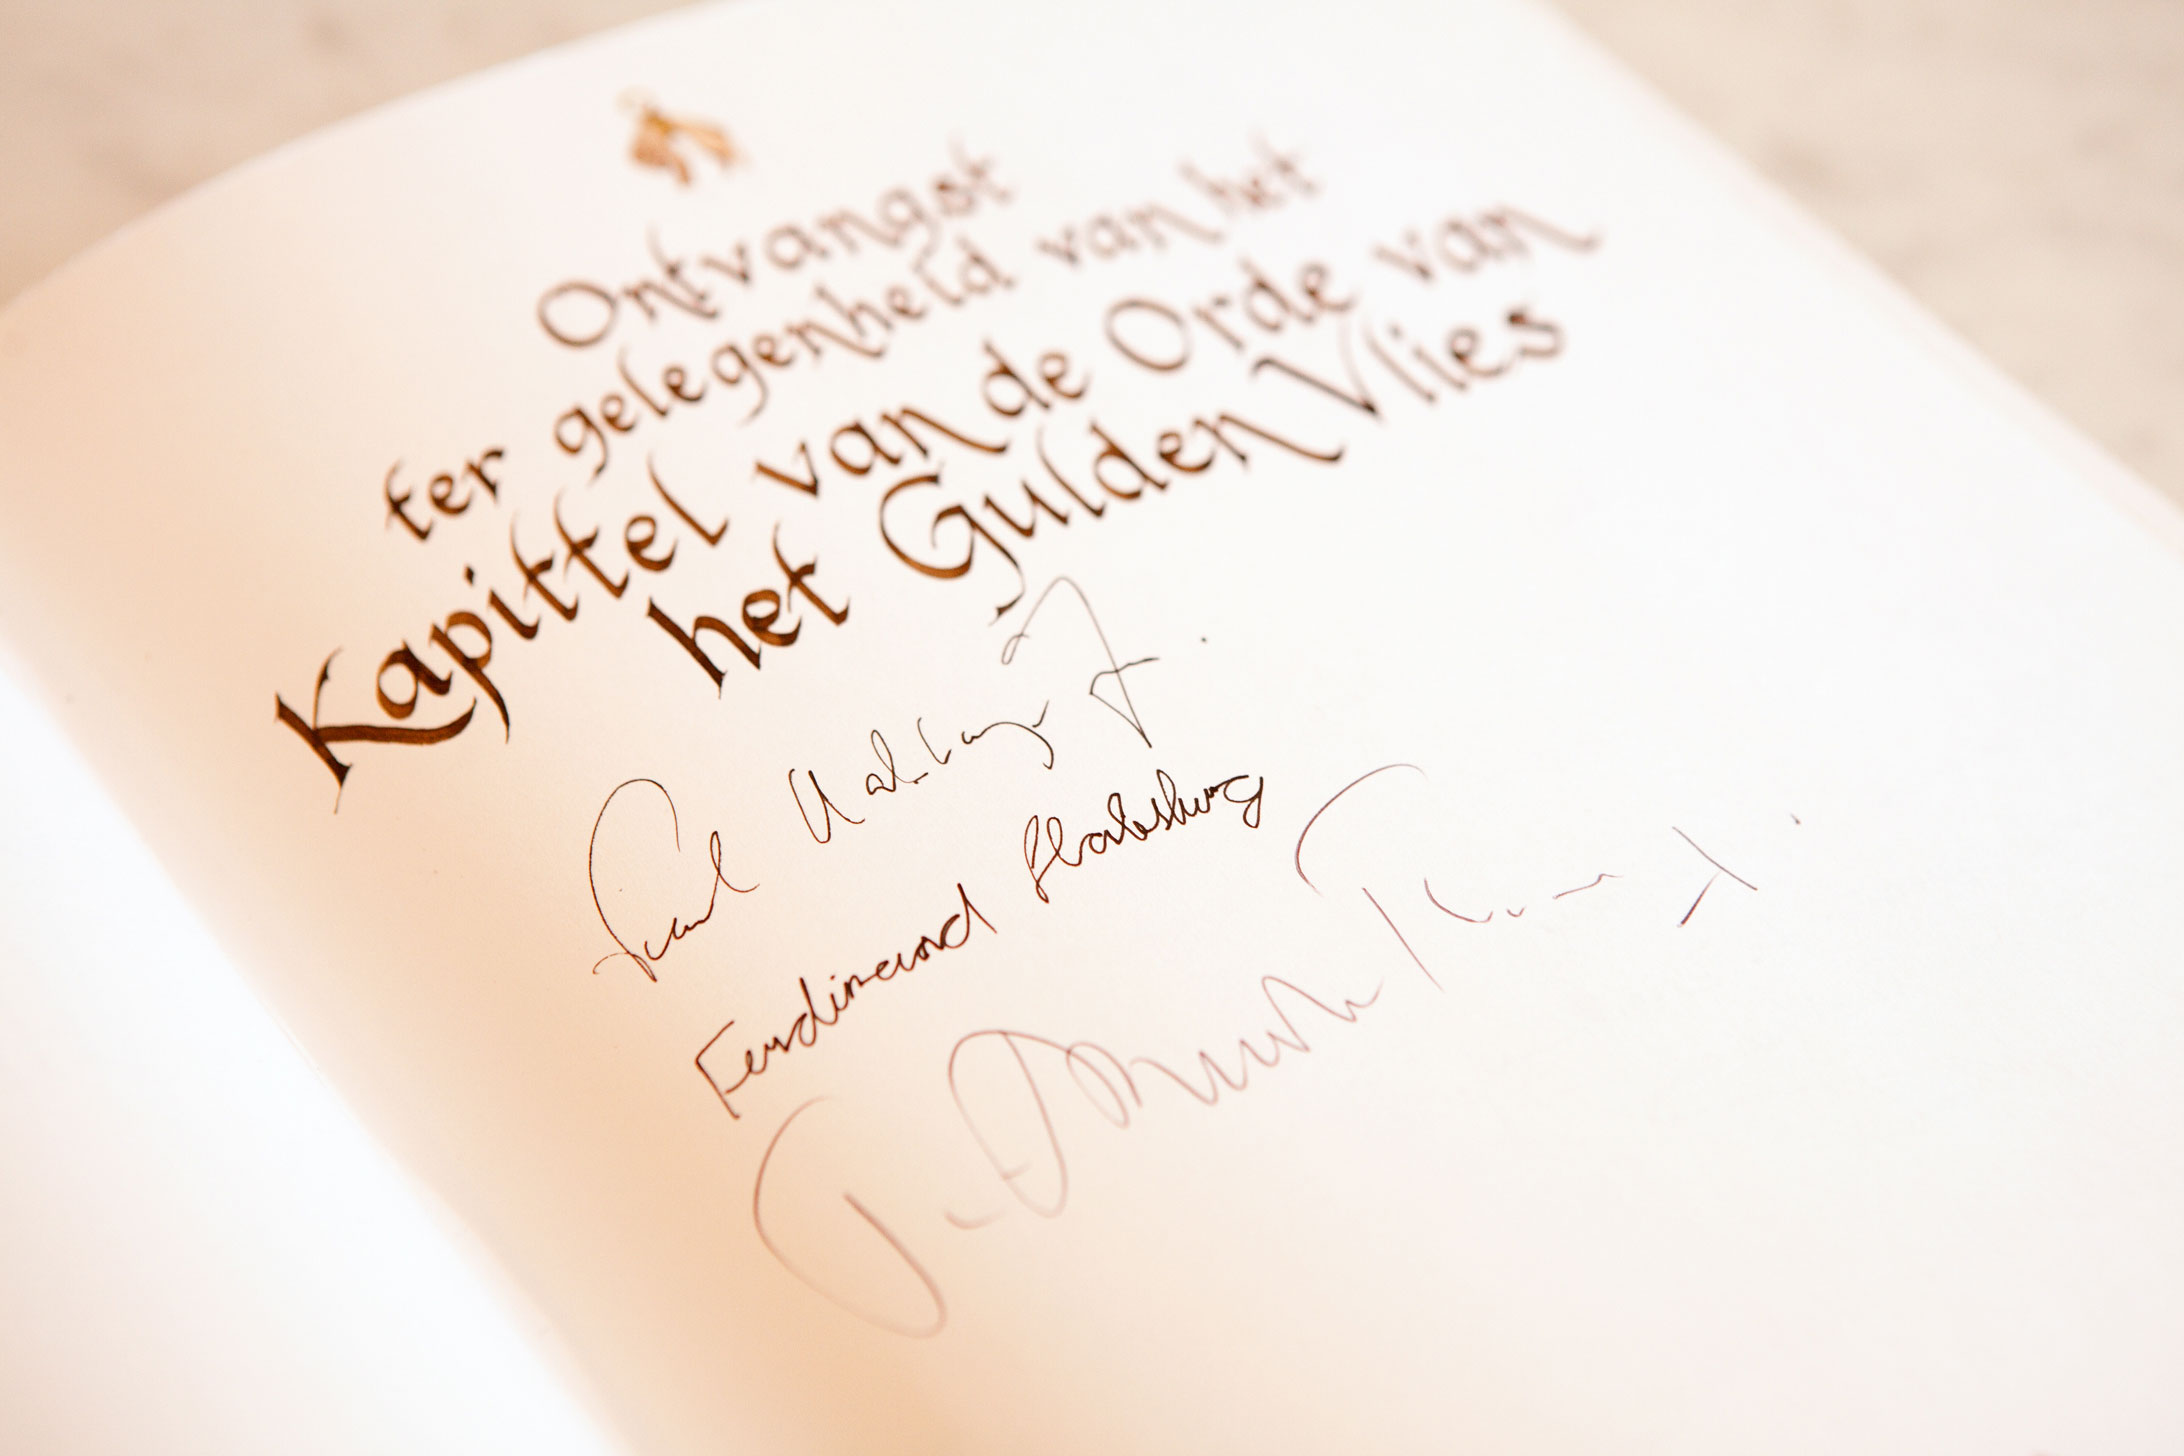 Ontvangst
ter gelegenheid van het
Kapittel van de Orde van
het Gulden Vlies
Ferdinand Habsburg